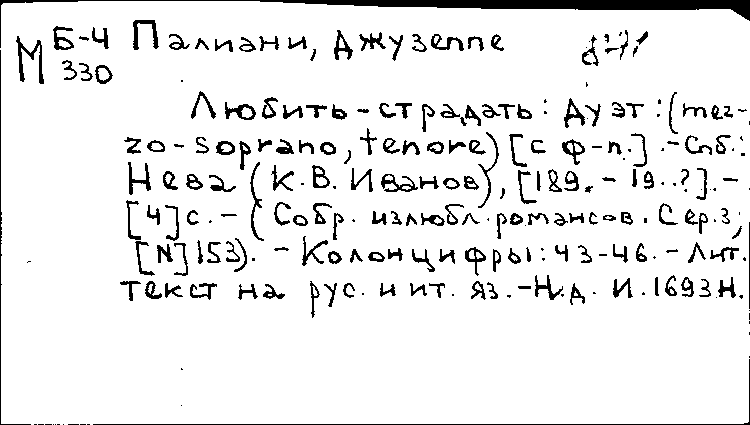 М Б-4 330 Палиани, Джузеппе
Любить-страдать: Дуэт: (mez-
zo-soprano, tenore) [с ф-п.].-Спб.:
Нева (К.В. Иванов), [189.-19..?].-
[4]с.-(Собр. излюбл. романсов. Сер.3;
[N]153).-Колонцифры: 43-46.-Лит.
текст на рус. и ит. яз.-Н.д. И.1693Н.